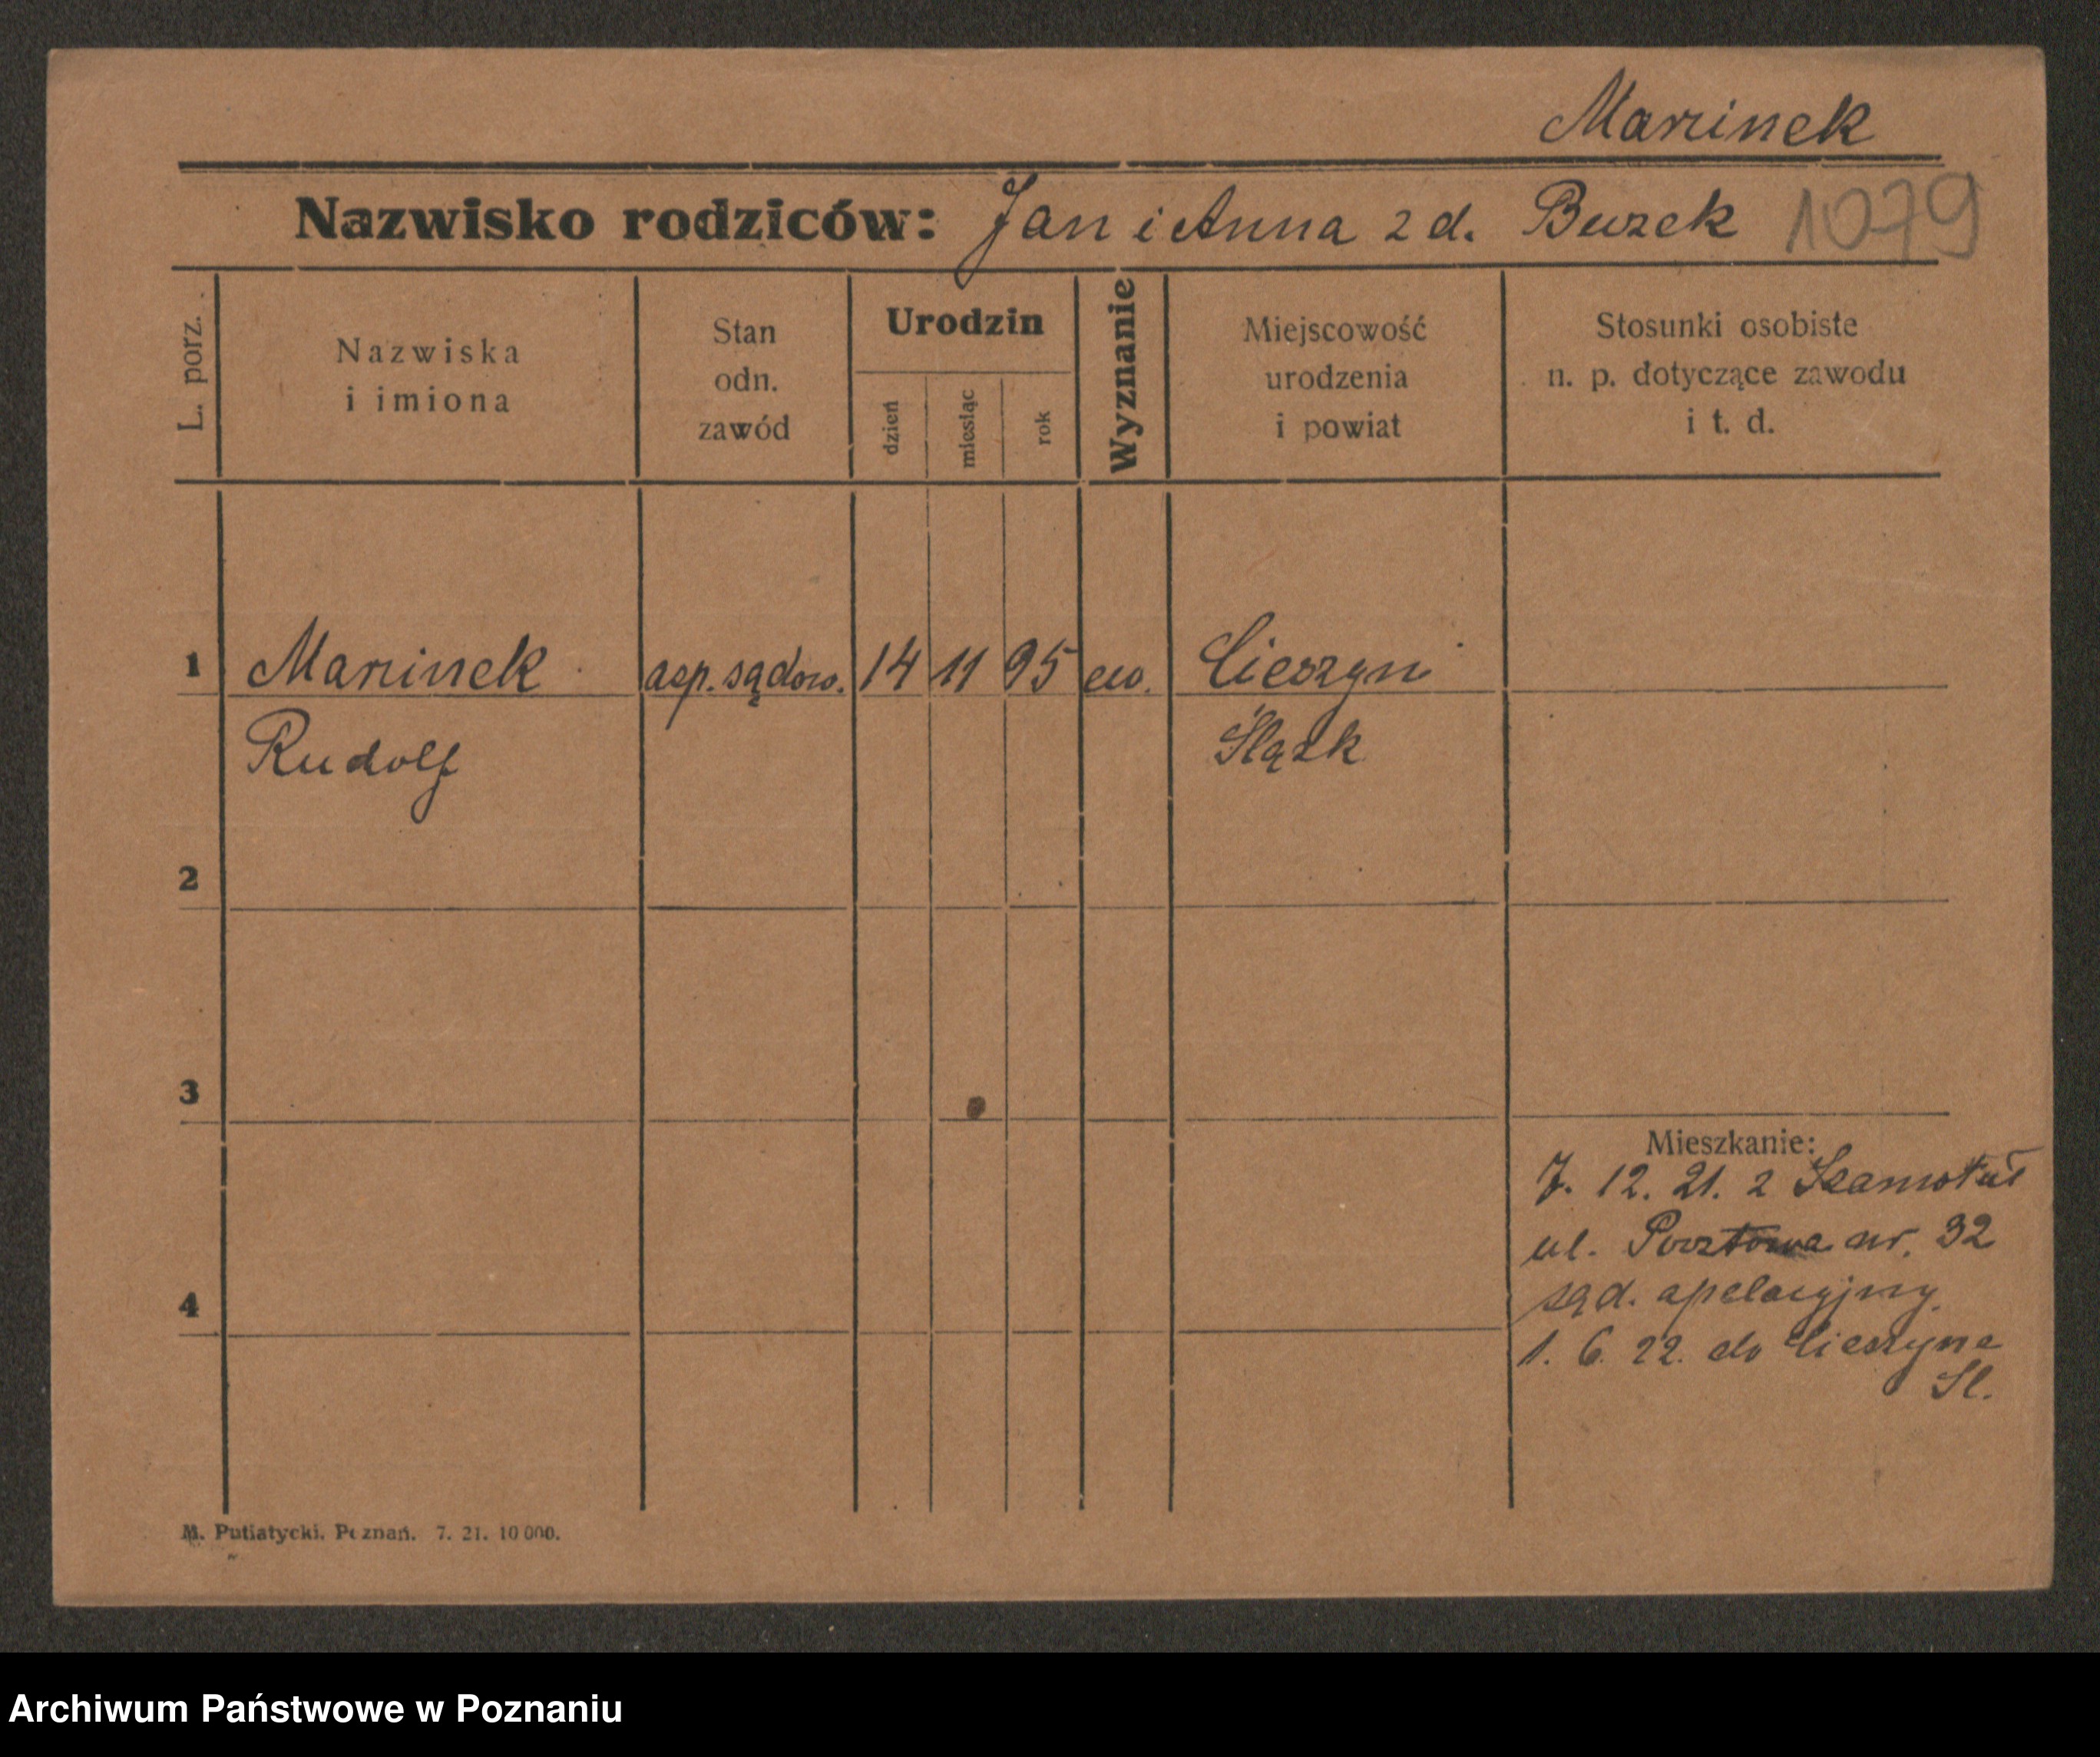 Marzinek
Nazwisko rodziców: Jan i Anna z d. Buzek 1079
L. porz.
Nazwiska
i imiona
Stan
odn.
zawód
Urodzin
dzień
miesiąc
rok
Wyznanie
Miejscowość
urodzenia
i powiat
Stosunki osobiste
n. p. dotyczące zawodu
i t. d.
1 Marzinek asp. sądow. 14 11 95 ew. Cieszyn
Rudolf Śląsk
2
3
4
Mieszkanie:
7. 12. 21. z Szamotuł
ul. Pocztowa nr. 32
sąd. apelacyjny.
1. 6. 22. do Cieszyna
Śl.
M. Putiatycki. Poznań. 7. 21. 10 000.
Archiwum Państwowe w Poznaniu